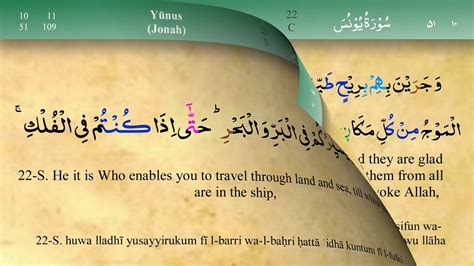 10 11 Yūnus 22 سُورَةُ يُونُسَ ٥١ ١٠
51 109 (Jonah) C
وَجَرَيْنَ بِهِم بِرِيحٍ
الْمَوْجُ مِن كُلِّ
كُمْ فِي الْبَرِّ وَالْبَحْرِ ۖ حَتَّىٰ إِذَا كُنتُمْ فِي الْفُلْكِ
d they are glad
22-S. He it is Who enables you to travel through land and sea, till
them from all
are in the ship,
voke Allah,
sifun wa-
22-S. huwa lladhī yusayyirukum fī l-barri wa-l-baḥri ḥattā ʾidhā kuntum fī l-fulki
wu llāha